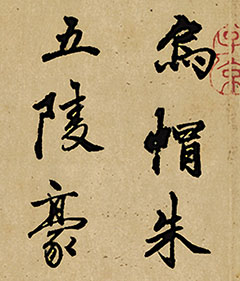 烏帽朱
五陵豪